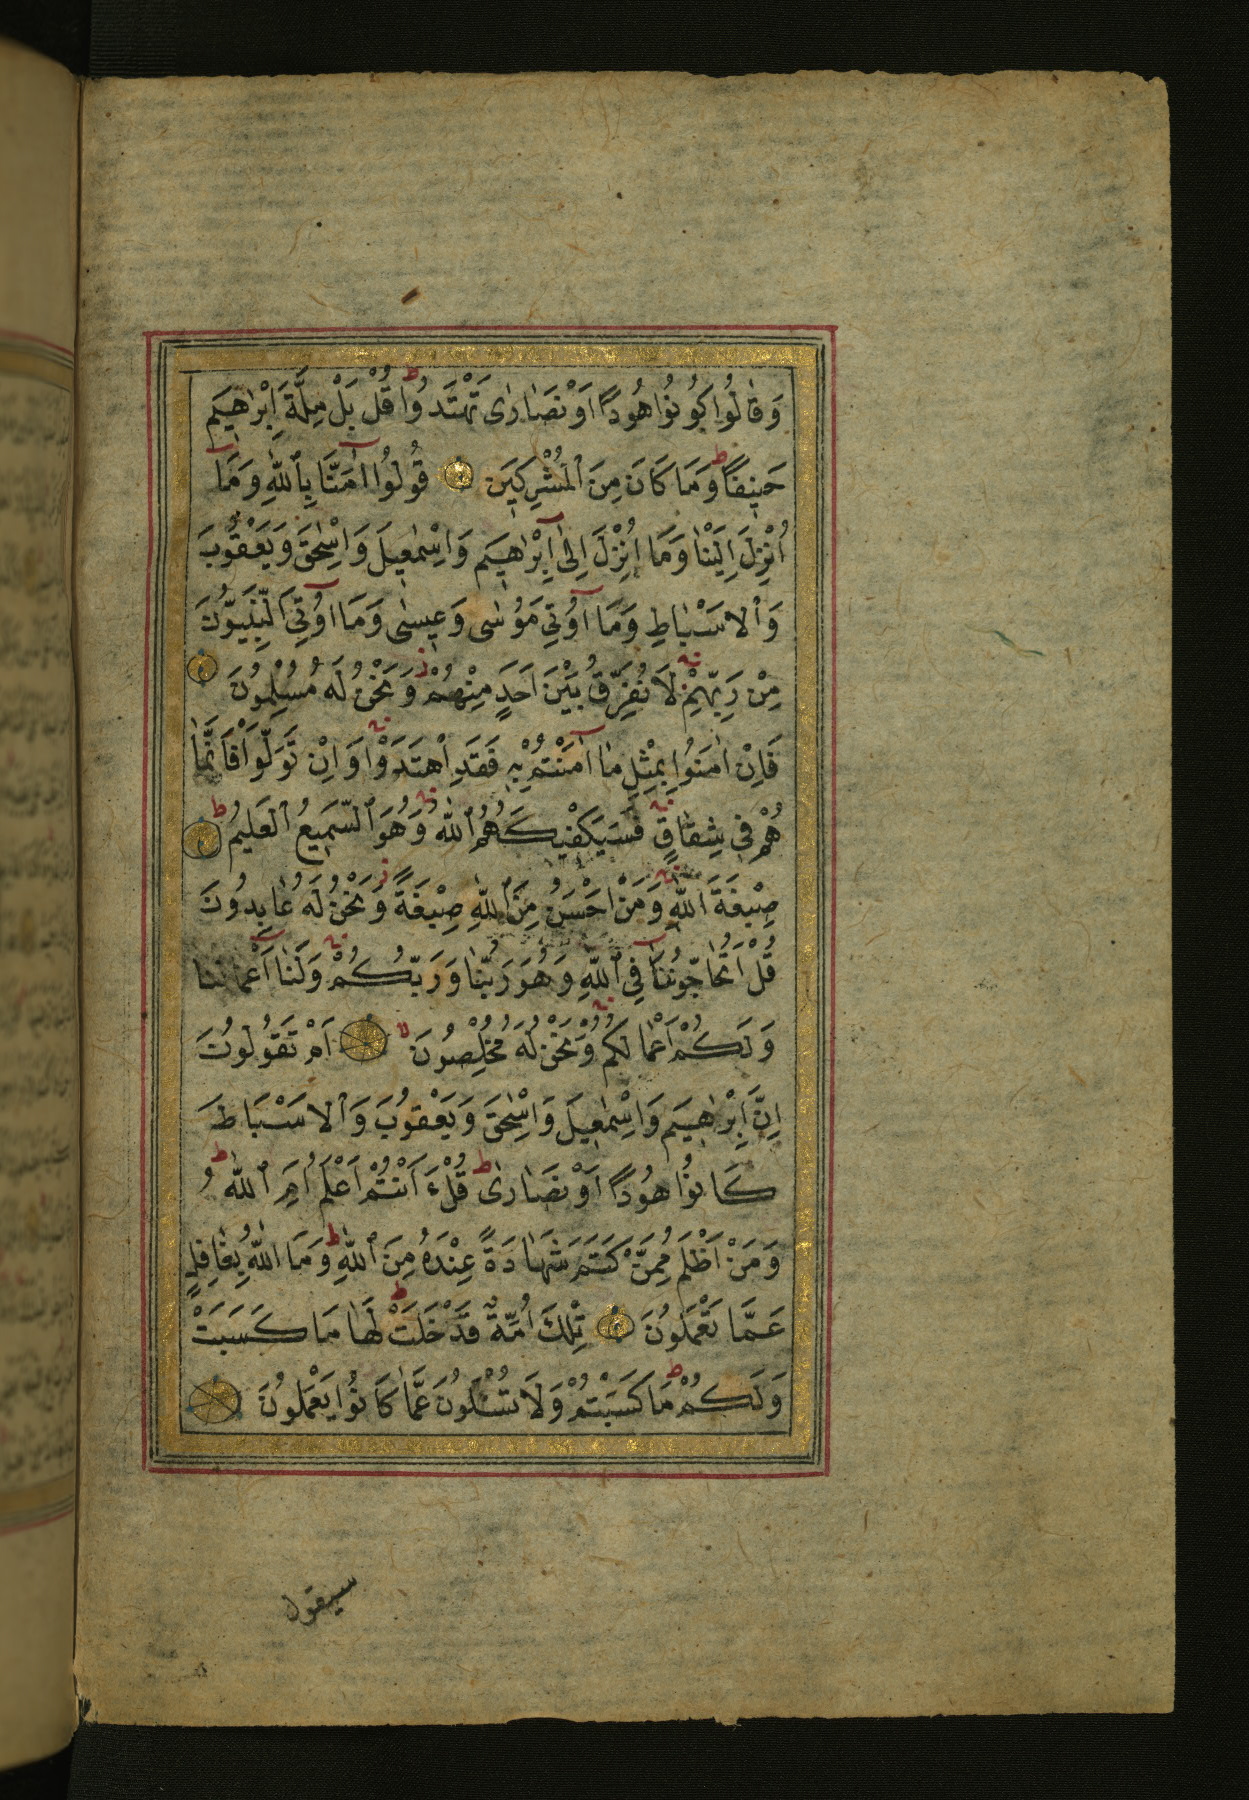 وَقَالُوا كُونُوا هُودًا اَوْ نَصَارٰى تَهْتَدُوا ط قُلْ بَلْ مِلَّةَ اِبْرٰهٖيمَ
حَنِيفًا ط وَمَا كَانَ مِنَ ٱلْمُشْرِكِينَ قُولُوا اٰمَنَّا بِٱللّٰهِ وَمَآ
اُنْزِلَ اِلَيْنَا وَمَا اُنْزِلَ اِلٰىٓ اِبْرٰهٖيمَ وَاِسْمٰعِيلَ وَاِسْحٰقَ وَيَعْقُوبَ
وَٱلْاَسْبَاطِ وَمَآ اُوتِيَ مُوسٰى وَعِيسٰى وَمَآ اُوتِيَ ٱلنَّبِيُّونَ
مِنْ رَبِّهِمْ لَا نُفَرِّقُ بَيْنَ اَحَدٍ مِنْهُمْ ز وَنَحْنُ لَهُ مُسْلِمُونَ
فَاِنْ اٰمَنُوا بِمِثْلِ مَآ اٰمَنْتُمْ بِهٖ فَقَدِ ٱهْتَدَوْا وَاِنْ تَوَلَّوْا فَاِنَّمَا
هُمْ فِي شِقَاقٍ فَسَيَكْفِيكَهُمُ ٱللّٰهُ وَهُوَ ٱلسَّمِيعُ ٱلْعَلِيمُ ط
صِبْغَةَ ٱللّٰهِ وَمَنْ اَحْسَنُ مِنَ ٱللّٰهِ صِبْغَةً ز وَنَحْنُ لَهُ عَابِدُونَ
قُلْ اَتُحَاجُّونَنَا فِي ٱللّٰهِ وَهُوَ رَبُّنَا وَرَبُّكُمْ وَلَنَآ اَعْمَالُنَا
وَلَكُمْ اَعْمَالُكُمْ وَنَحْنُ لَهُ مُخْلِصُونَ لا اَمْ تَقُولُونَ
اِنَّ اِبْرٰهٖيمَ وَاِسْمٰعِيلَ وَاِسْحٰقَ وَيَعْقُوبَ وَٱلْاَسْبَاطَ
كَانُوا هُودًا اَوْ نَصَارٰى ط قُلْ ءَاَنْتُمْ اَعْلَمُ اَمِ ٱللّٰهُ ط
وَمَنْ اَظْلَمُ مِمَّنْ كَتَمَ شَهَادَةً عِنْدَهُ مِنَ ٱللّٰهِ ط وَمَا اللّٰهُ بِغَافِلٍ
عَمَّا تَعْمَلُونَ تِلْكَ اُمَّةٌ قَدْ خَلَتْ ط لَهَا مَا كَسَبَتْ
وَلَكُمْ مَا كَسَبْتُمْ ط وَلَا تُسْئَلُونَ عَمَّا كَانُوا يَعْمَلُونَ
سيقول